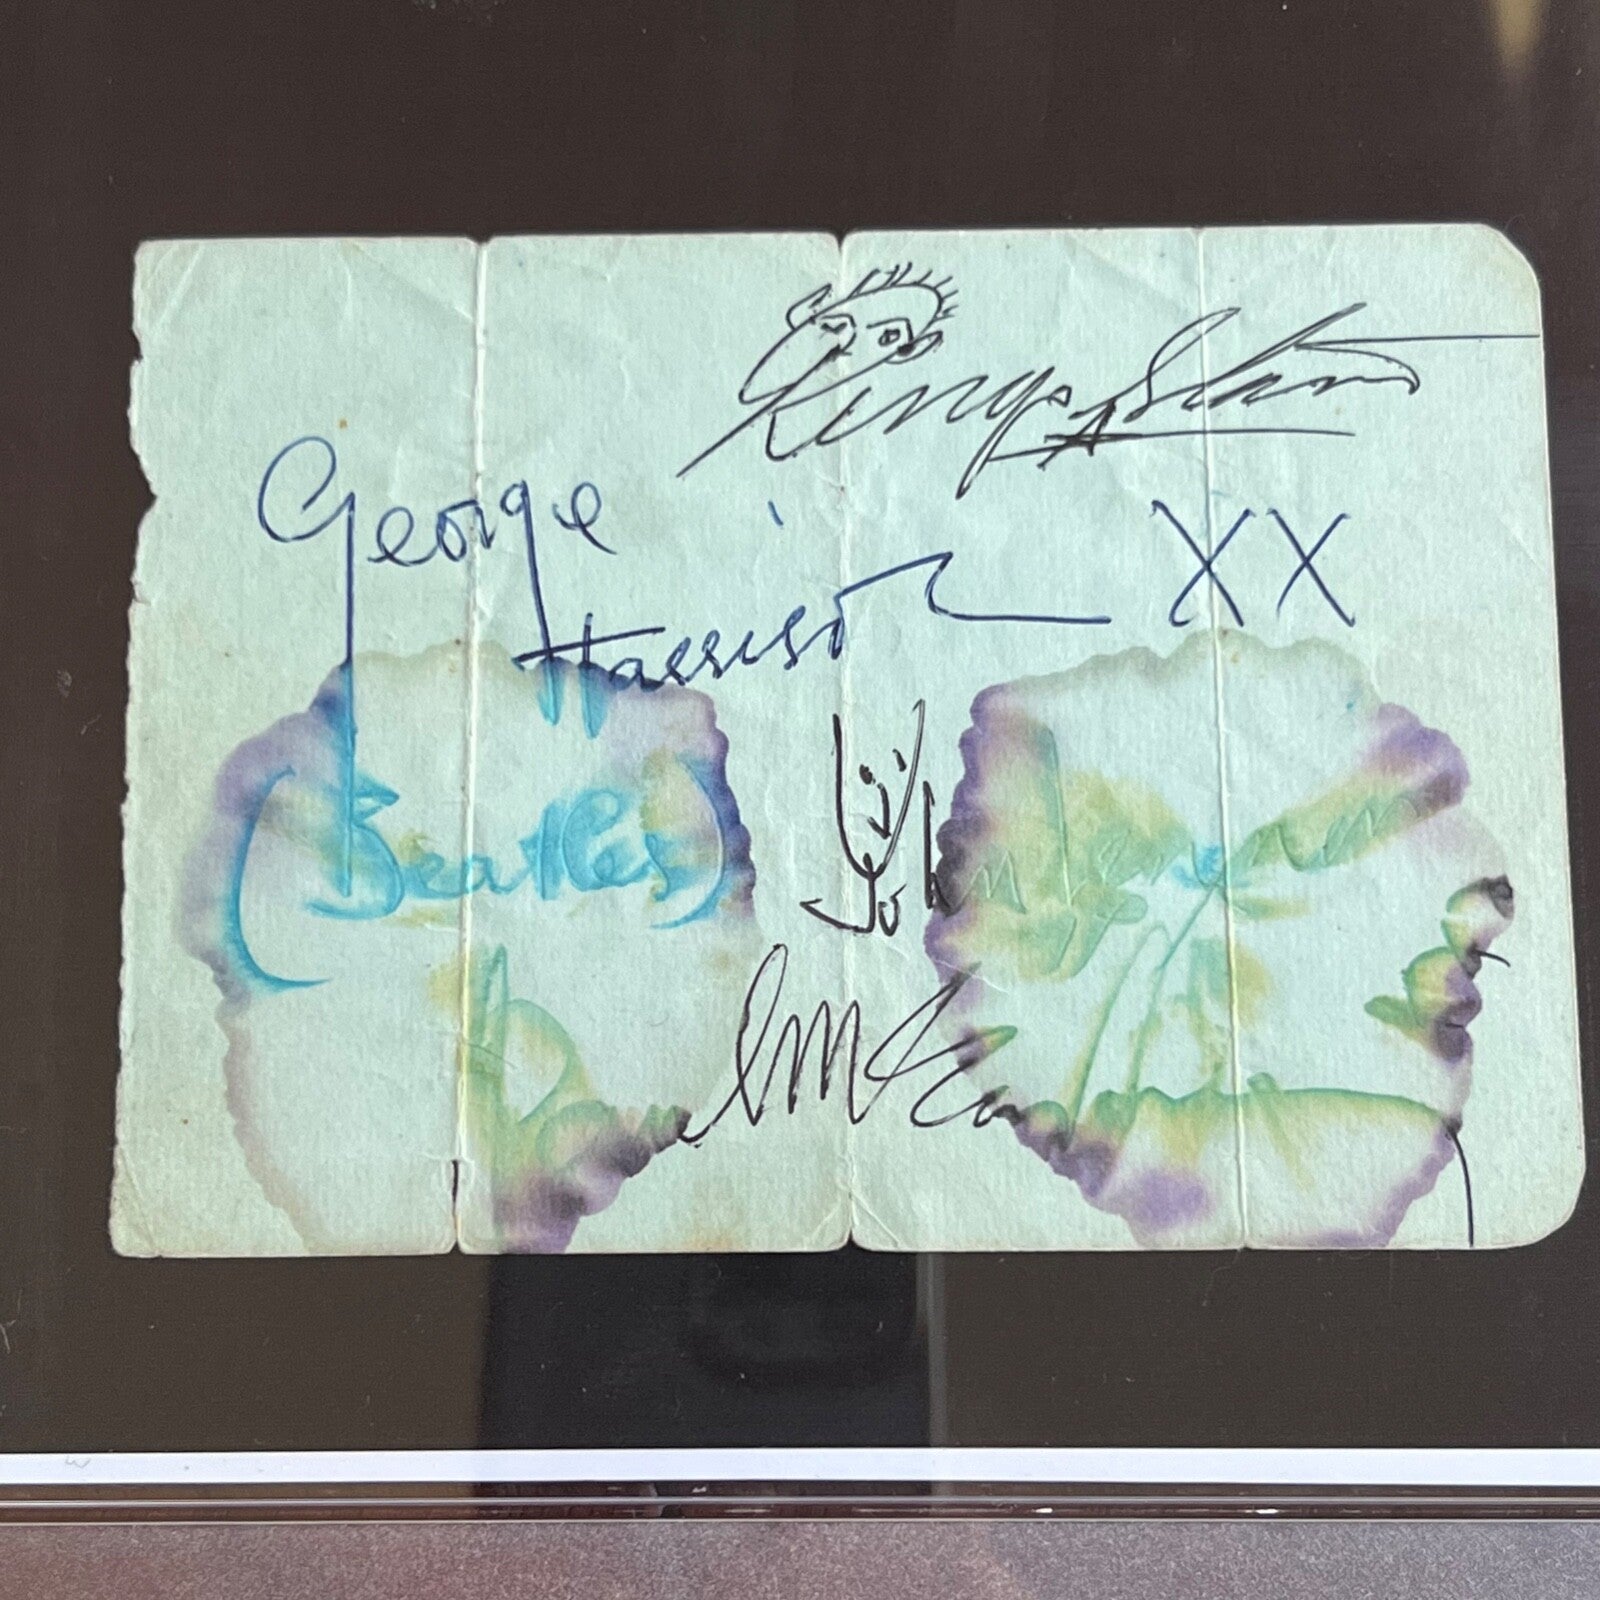 Ringo Starr
George
Harrison XX
(Beatles)
John Lennon
Paul McCartney